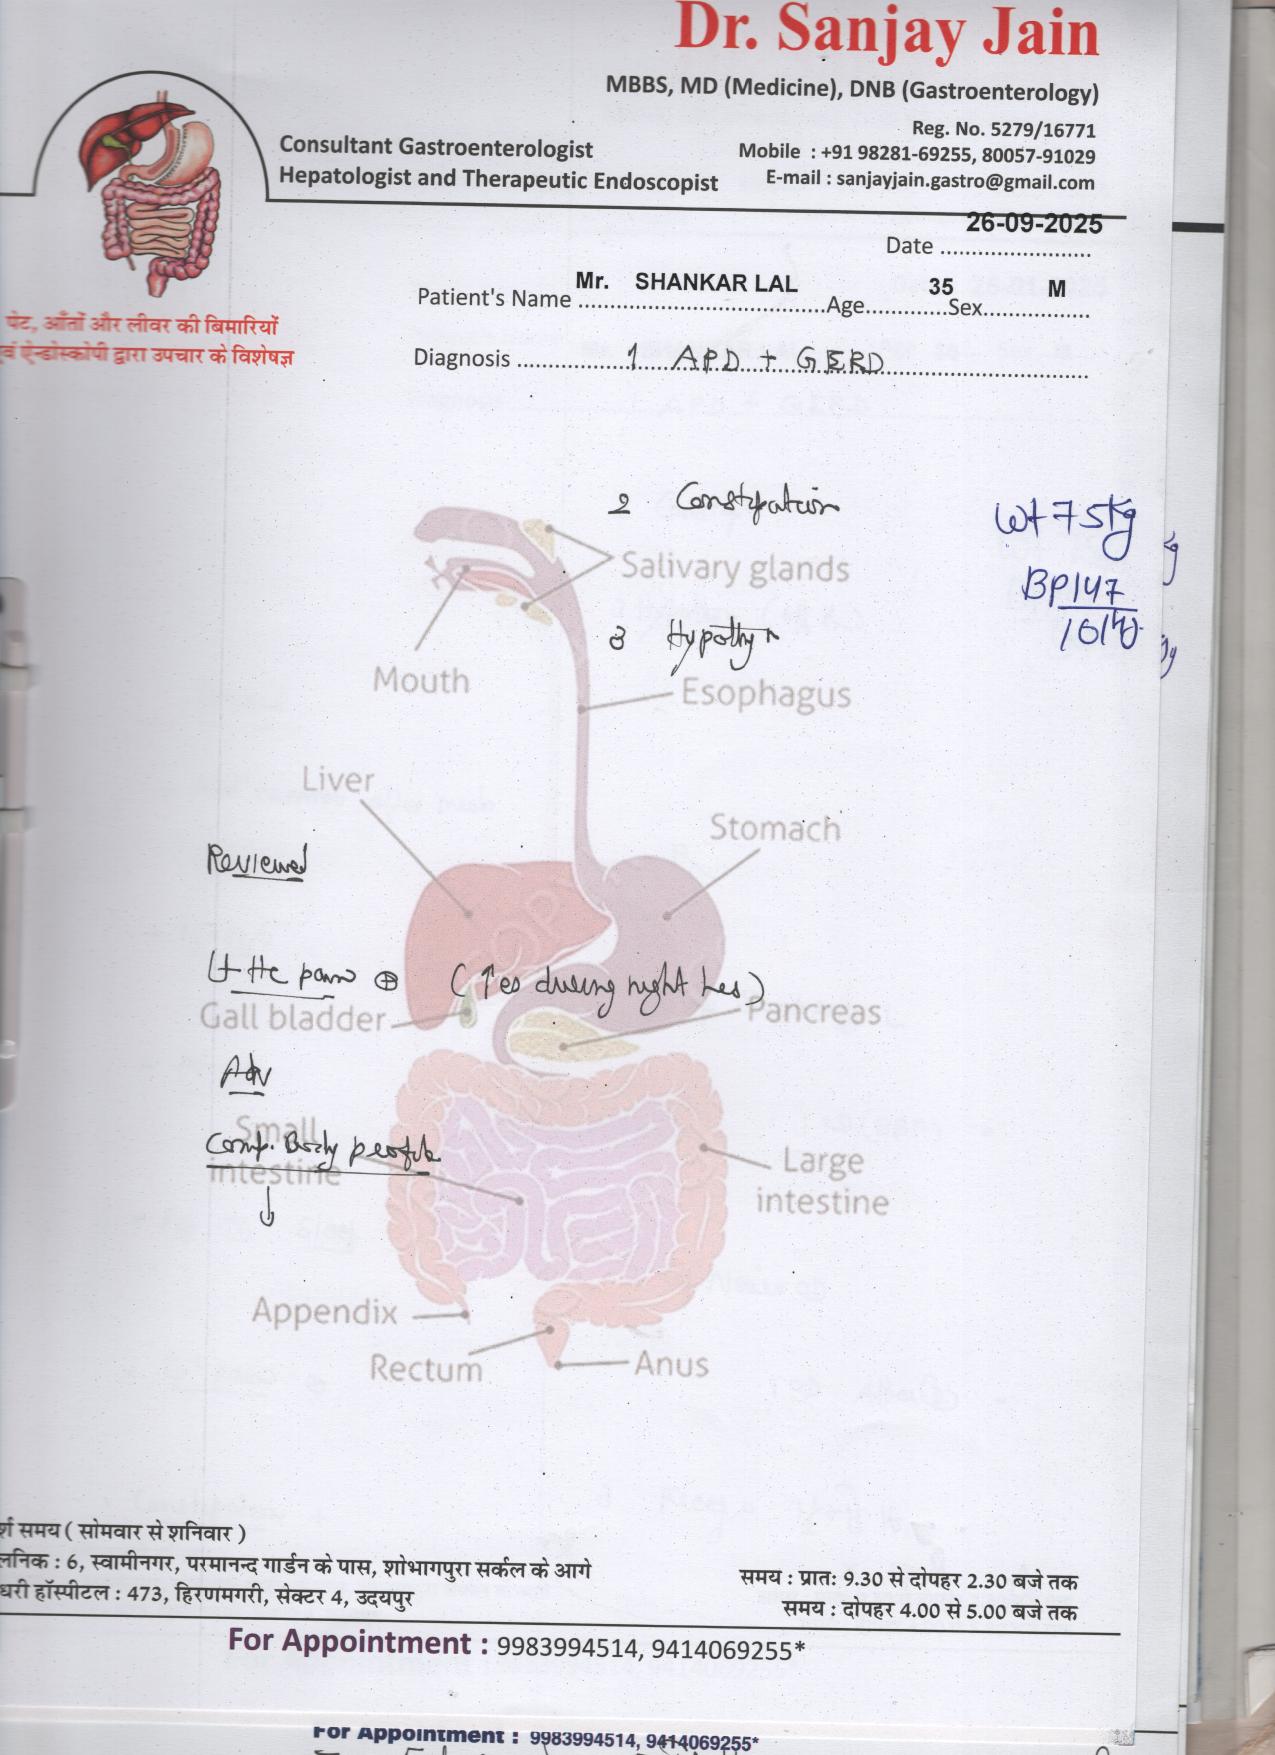 Dr. Sanjay Jain
MBBS, MD (Medicine), DNB (Gastroenterology)
Reg. No. 5279/16771
Consultant Gastroenterologist
Mobile : +91 98281-69255, 80057-91029
Hepatologist and Therapeutic Endoscopist
E-mail : sanjayjain.gastro@gmail.com
26-09-2025
Date ........................
Mr. SHANKAR LAL 35 M
Patient's Name ........................................Age.............Sex.................
पेट, आँतों और लीवर की बिमारियों
एन्डोस्कोपी द्वारा उपचार के विशेषज्ञ
Diagnosis 1 APD + GERD
2 Constipation
Wt 75kg
Salivary glands
BP 147
3 Hypothy
Mouth
Esophagus
Liver
Stomach
Reviewed
Lt Hc pain ⊕ (↑es during night hrs)
Gall bladder
Pancreas
Adv
Small
Comp. Body profile
intestine
Large
intestine
↓
Appendix
Rectum
Anus
समय ( सोमवार से शनिवार )
: 6, स्वामीनगर, परमानन्द गार्डन के पास, शोभागपुरा सर्कल के आगे
समय : प्रातः 9.30 से दोपहर 2.30 बजे तक
हॉस्पीटल : 473, हिरणमगरी, सेक्टर 4, उदयपुर
समय : दोपहर 4.00 से 5.00 बजे तक
For Appointment : 9983994514, 9414069255*
For Appointment : 9983994514, 9414069255*